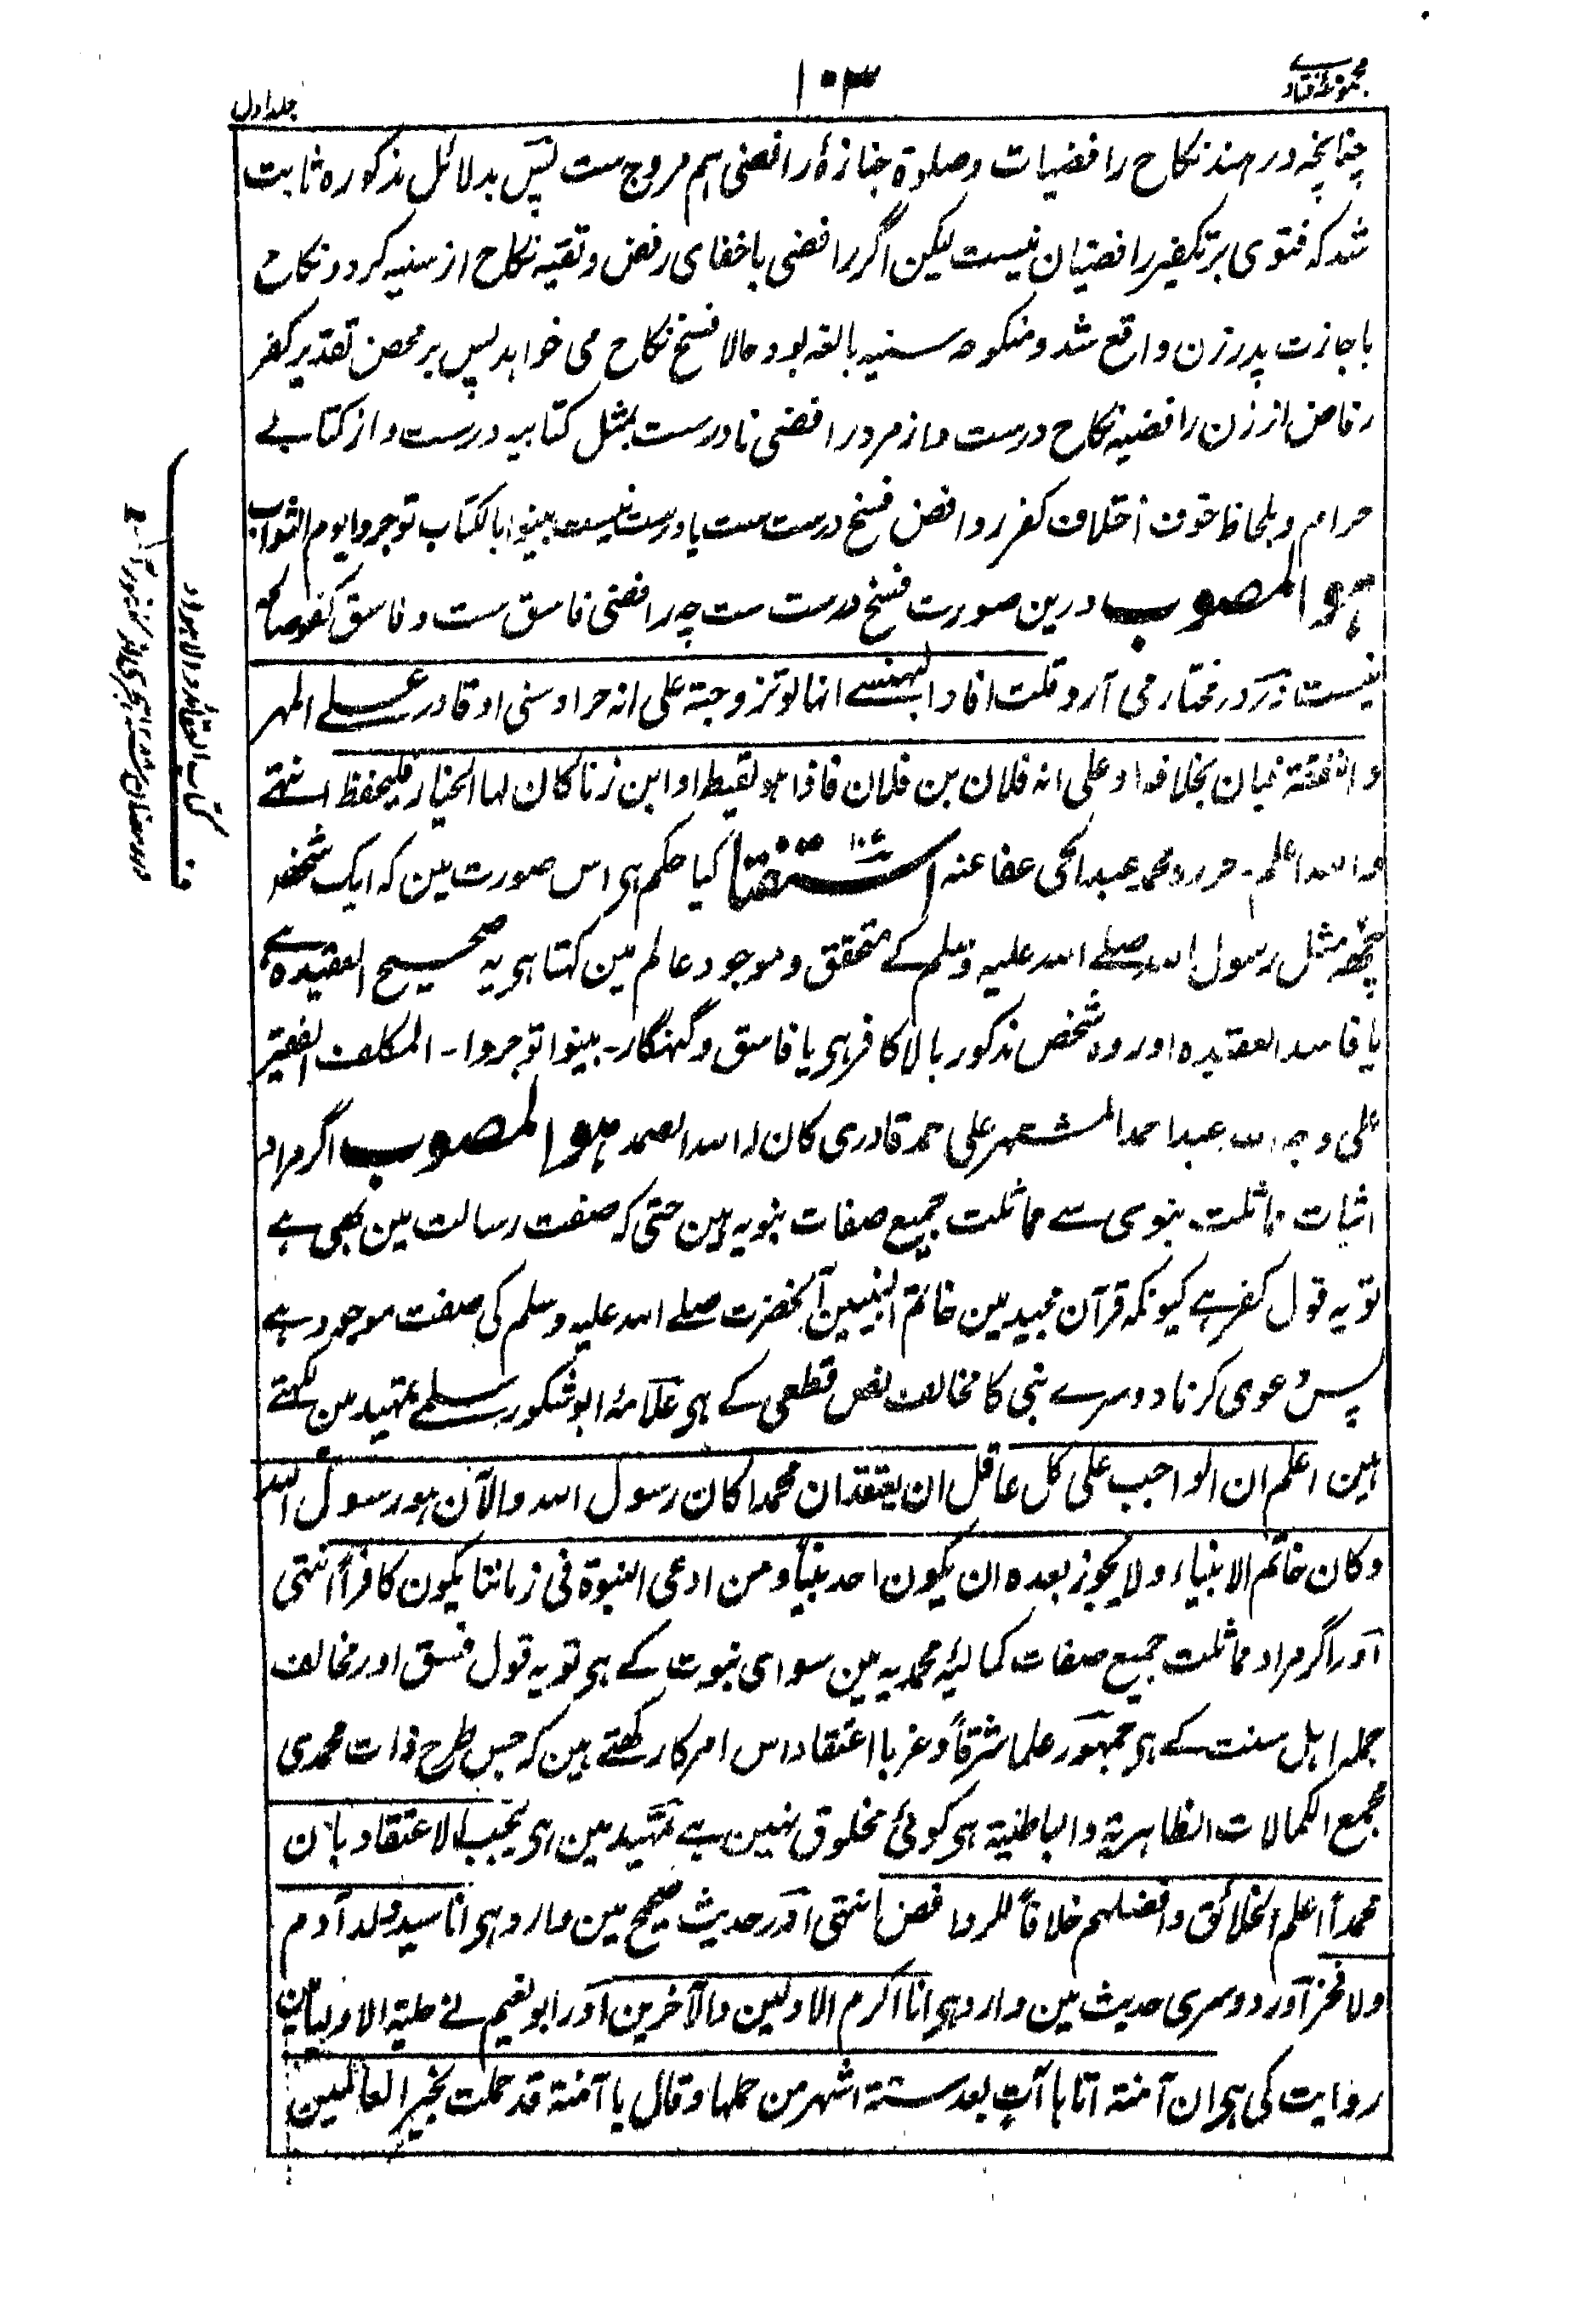 مجموعہ فتاوے
۱۰۳
جلد اول
چنانچہ در ہند نکاح رافضیات وصلوۃ جنازۂ رافضی ہم مروج ست پس بدلائل مذکورہ ثابت
شد کہ فتوی بر تکفیر رافضیان نیست لیکن اگر رافضی باخفای رفض وتقیہ نکاح از سنیہ کرد ونکاح
باجازت پدر زن واقع شد ومنکوحہ سنیہ بالغہ بود حالا فسخ نکاح می خواہد پس بر محض تقدیر کفر
رفاض از زن رافضیہ نکاح درست واز مرد رافضی نادرست بمثل کتابیہ درست واز کتابے
حرام وبلحاظ خوف اختلاف کفر روافض فسخ درست ست یا درست نیست بینوا بالکتاب توجروا یوم الثواب
ہو المصوب درین صورت فسخ درست ست چہ رافضی فاسق ست وفاسق کفو صالح
نیست در درمختار می آرد قلت افاد البہنسے انہا لو تزوجتہ علی انہ حر او سنی او قادر علے المہر
والنفقۃ فبان بخلافہ او علی انہ فلان بن فلان فاذا ہو لقیط او ابن زنا کان لہا الخیار فلیحفظ انتہے
واللہ اعلم۔ حررہ محمد عبدالحی عفا عنہ استفتا کیا حکم ہی اس صورت مین کہ ایک شخص
چھہ مثل رسول اللہ صلے اللہ علیہ وسلم کے متحقق وموجود عالم مین کہتا ہی یہ صحیح العقیدہ ہے
یا فاسد العقیدہ اور وہ شخص مذکور بالا کافر ہی یا فاسق وگنہگار۔ بینوا توجروا۔ المکلف الفقیر
علی وجہ اللہ عبد احمد المشتہر علی احمد قادری کان لہ اللہ الصمد ہو المصوب اگر مراد
اثبات مماثلت نبوی سے مماثلت جمیع صفات نبویہ مین حتی کہ صفت رسالت مین بھی ہے
تو یہ قول کفر ہے کیونکہ قرآن مجید مین خاتم النبیین آنحضرت صلے اللہ علیہ وسلم کی صفت موجود ہے
پس دعوی کرنا دوسرے نبی کا مخالف نص قطعی کے ہی علامۂ ابو شکور سلمے تمہید مین لکھتے
ہین اعلم ان الواجب علی کل عاقل ان یعتقد ان محمدا کان رسول اللہ والآن ہو رسول اللہ
وکان خاتم الانبیاء ولا یجوز بعدہ ان یکون احد نبیاً ومن ادعی النبوۃ فی زماننا یکون کافراً انتہی
اور اگر مراد مماثلت جمیع صفات کمالیۂ محمدیہ مین سوای نبوت کے ہی تو یہ قول فسق اور مخالف
جملہ اہل سنت کے ہی جمہور علما شرقاً وغربا اعتقاد اس امر کا رکھتے ہین کہ جس طرح ذات محمدی
مجمع الکمالات الظاہریۃ والباطنیۃ ہی کوئی مخلوق نہین ہے تمہید مین ہی یجب الاعتقاد بان
محمداً اعلم الخلائق وافضلہم خلافاً للروافض انتہی اور حدیث صحیح مین وارد ہی انا سید ولد آدم
ولا فخر اور دوسری حدیث مین وارد ہی انا اکرم الاولین والآخرین اور ابو نعیم نے حلیۃ الاولیا مین
روایت کی ہی ان آمنۃ اتاہا آت بعد ستۃ اشہر من حملہا وقال یا آمنۃ قد حملت بخیر العالمین
کتاب العقائد